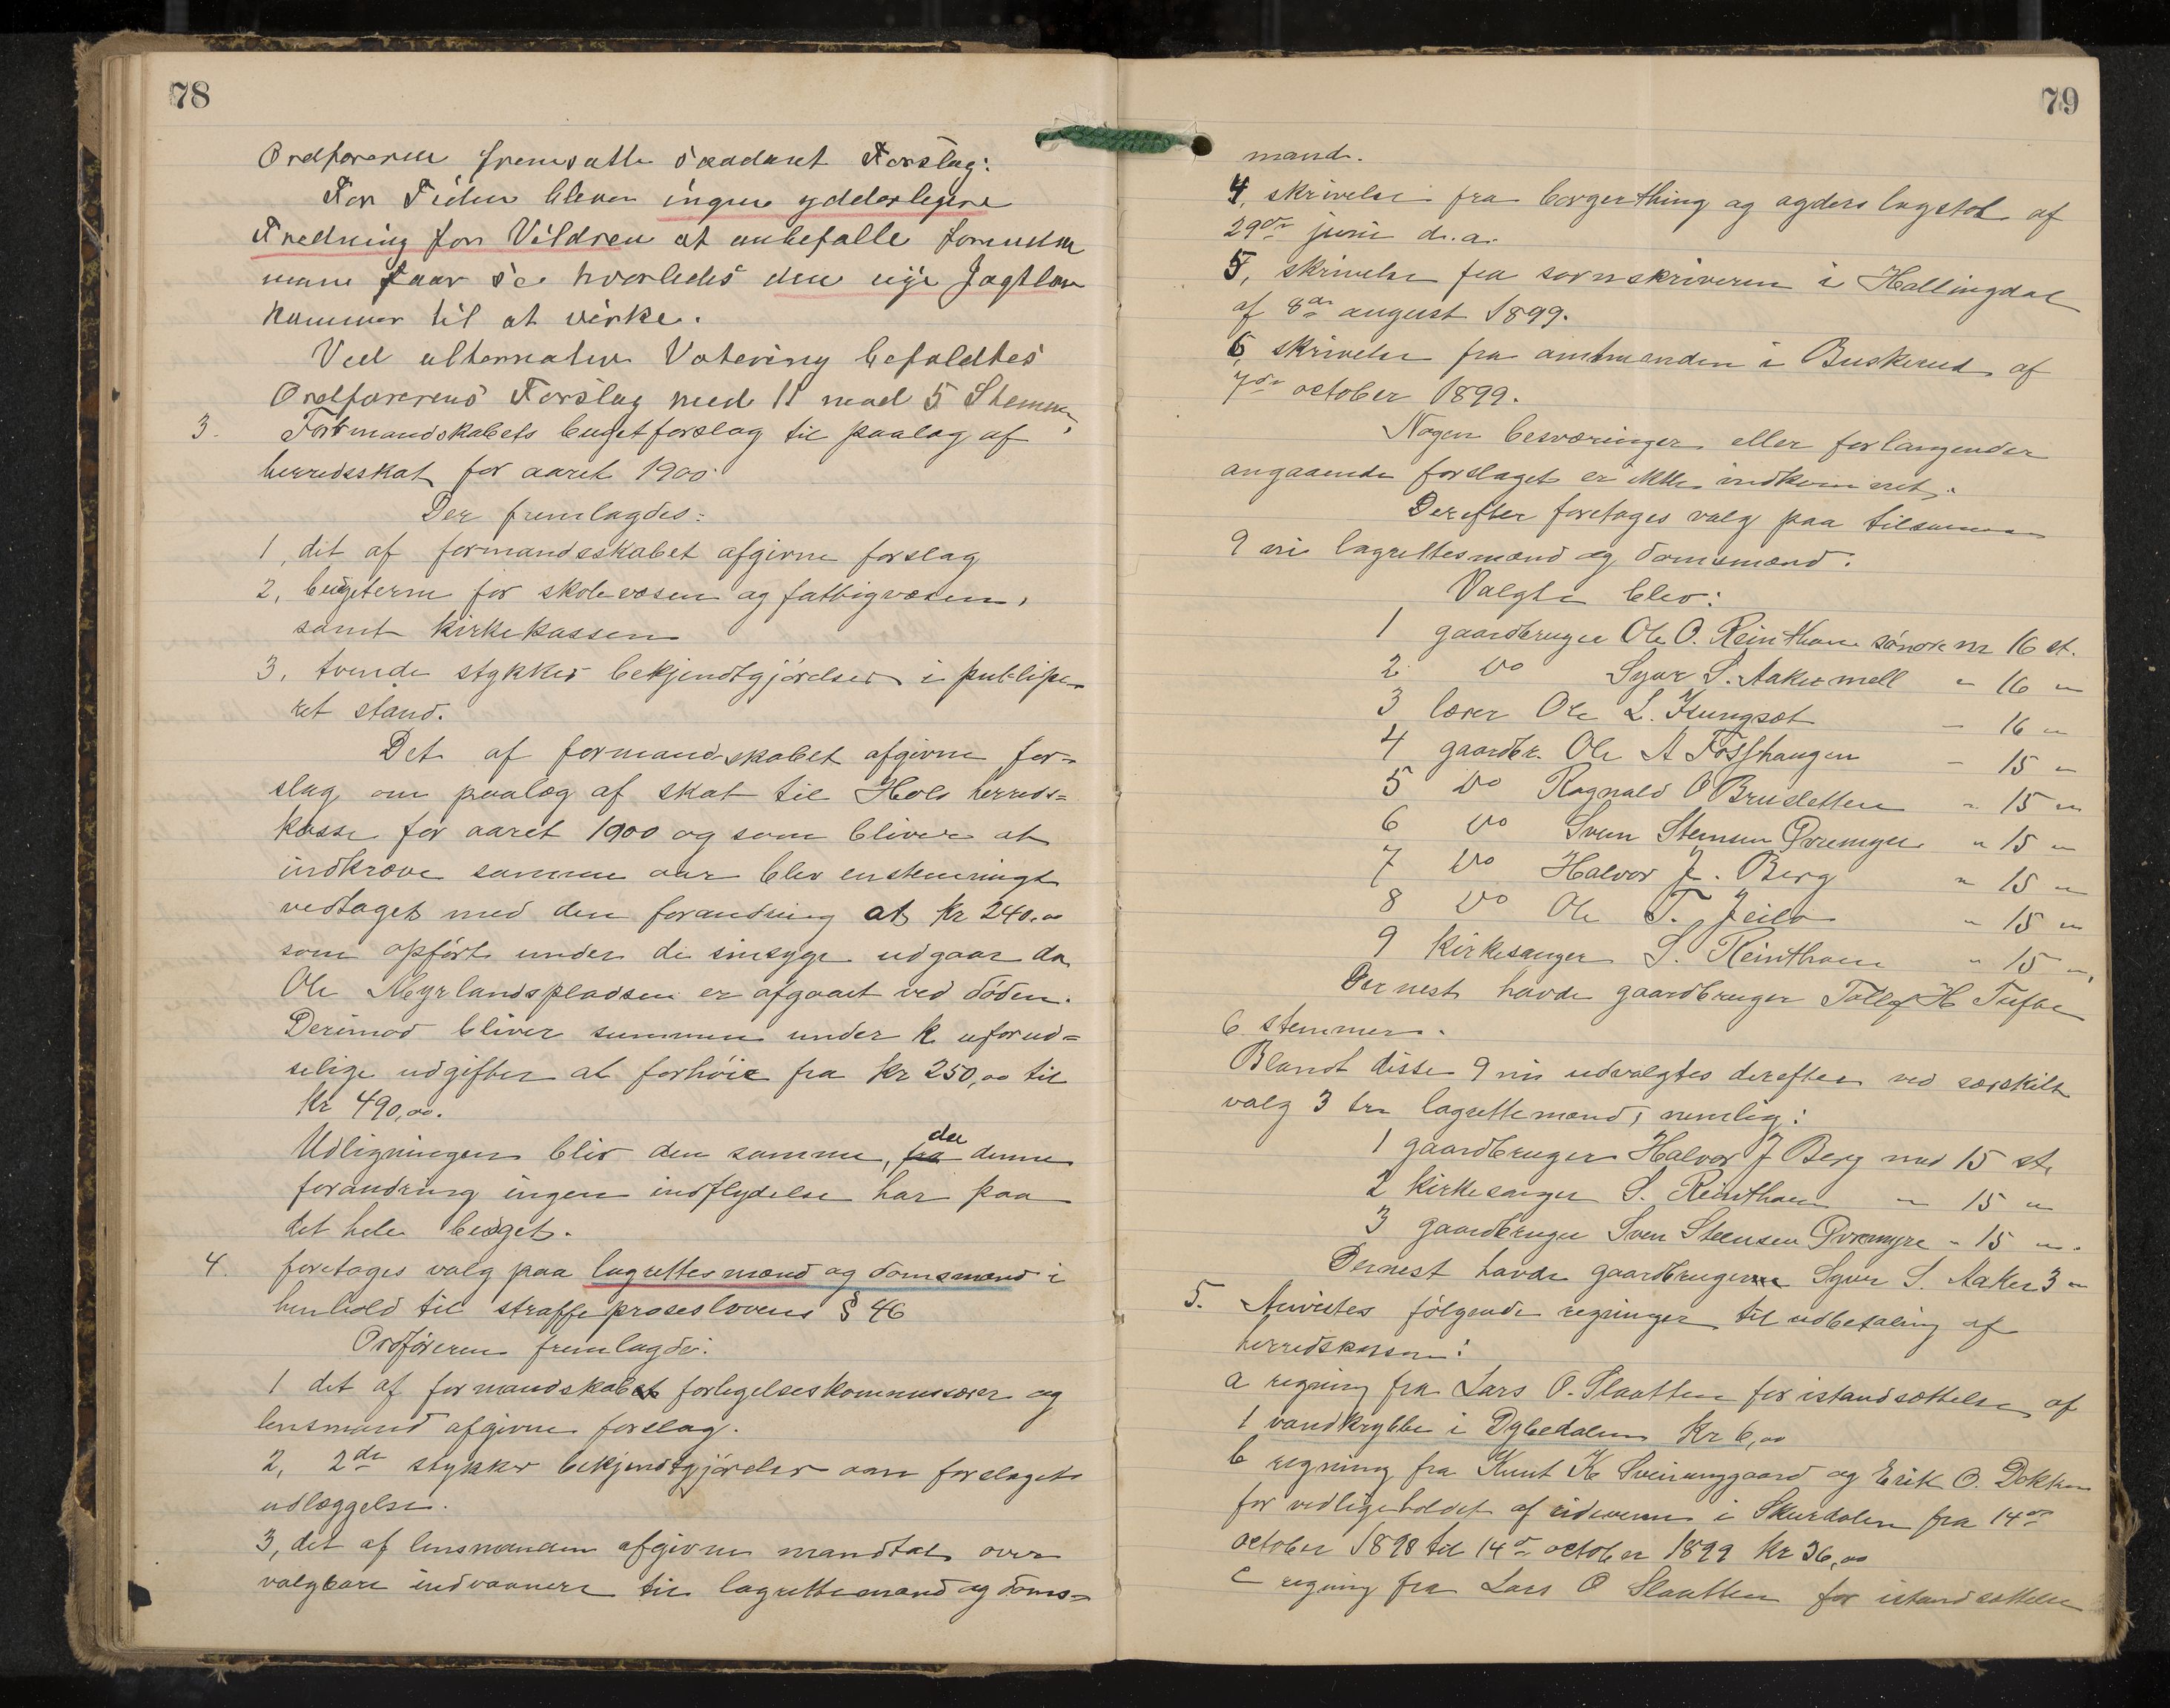 78
Ordføreren fremsatte saadant Forslag:
For Tiden bliver ingen ydderligere
Fredning for Vildren at anbefalle forinden
man faar se hvorledes den nye Jagtlov
kommer til at virke.
Ved alternativ Votering befaldtes
Ordførerens Forslag med 11 mod 5 Stemmer,
3. Formandskabets bugetforslag til paalæg af
herredsskat for aaret 1900
Der fremlagdes:
1, det af formandsskabet afgivne forslag
2, bugeterne for skolevæsen og fattigvæsen,
samt kirkekassen
3, tvende stykker bekjendtgjørelser i publise-
ret stand.
Det af formandskabet afgivne for=
slag om paalæg af skat til Hols herreds=
kasse for aaret 1900 og som bliver at
indkræve samme aar blev enstemmigt
vedtaget med den forandring at kr 240.00
som opført under de sinsyge udgaar da
Ole Myrlandspladsen er afgaaet ved døden.
Derimod bliver summen under k uforud=
selige udgifter at forhøie fra kr 250,00 til
kr 490,00.
Udligningen blir den samme, fra da denne
forandring ingen indflydelse har paa
det hele buget.
4. foretages valg paa lagrettesmænd og domsmænd i
henhold til straffeproseslovens § 46
Ordføreren fremlagde:
1 det af formandskabet forligelseskommissærer og
lensmand afgivne forslag.
2, 2de stykker bekjendtgjørelser om forslagets
udlæggelse.
3, det af lensmanden afgivne mandtal over
valgbare indvaanere til lagrettemænd og doms=
79
mænd.
4, skrivelse fra borgerthing og agders lagstol af
29de juni d.a.
5, skrivelse fra sornskriveren i Hallingdal
af 8de august 1899.
6, skrivelse fra amtmanden i Buskerud af
7de october 1899.
Nogen besværinger eller forlangender
angaaende forslaget er ikke indkommet.
Derefter foretages valg paa tilsammen
9 ni lagrettesmænd og domsmænd.
Valgte blev:
1 gaardbruger Ole O. Reinthon søndre m 16 st.
2 do Syver S. Aaker mell " 16 "
3 lærer Ole L. " 16 "
4 gaardbr. Ole A Fosshaugen " 15 "
5 do Ragnald O Brusletten " 15 "
6 do Sven Steinsen Øvremyre " 15 "
7 do Halvor J. Berg " 15 "
8 do Ole T. Jeilo " 15 "
9 Kirkesanger S. Reinthon " 15 "
Dernest havde gaardbruger Tollef H Tufte
6 stemmer.
Blandt disse 9 ni udvalgtes derefter ved særskilt
valg 3 tre lagrettemænd, nemlig:
1 gaardbruger Halvor J Berg med 15 st.
2 kirkesanger S. Reinthon " 15 "
3 gaardbruger Sven Steensen Øvremyre " 15 ".
Dernest havde gaardbruger Syver S. Aaker 3 "
5. Anvistes følgende regninger til udbetaling af
herredskassen:
a regning fra Lars O. Slaatten for istandsættelse af
1 vandkrybbe i Dybedalen Kr 6,00
b regning fra Knut K Sveinunggaard og Erik O. Dokken
for vedligeholdet af rideveien i Skurdalen fra 14de
october 1898 til 14de october 1899 kr 36,00
c regning fra Lars O Slaatten for istandsættelse